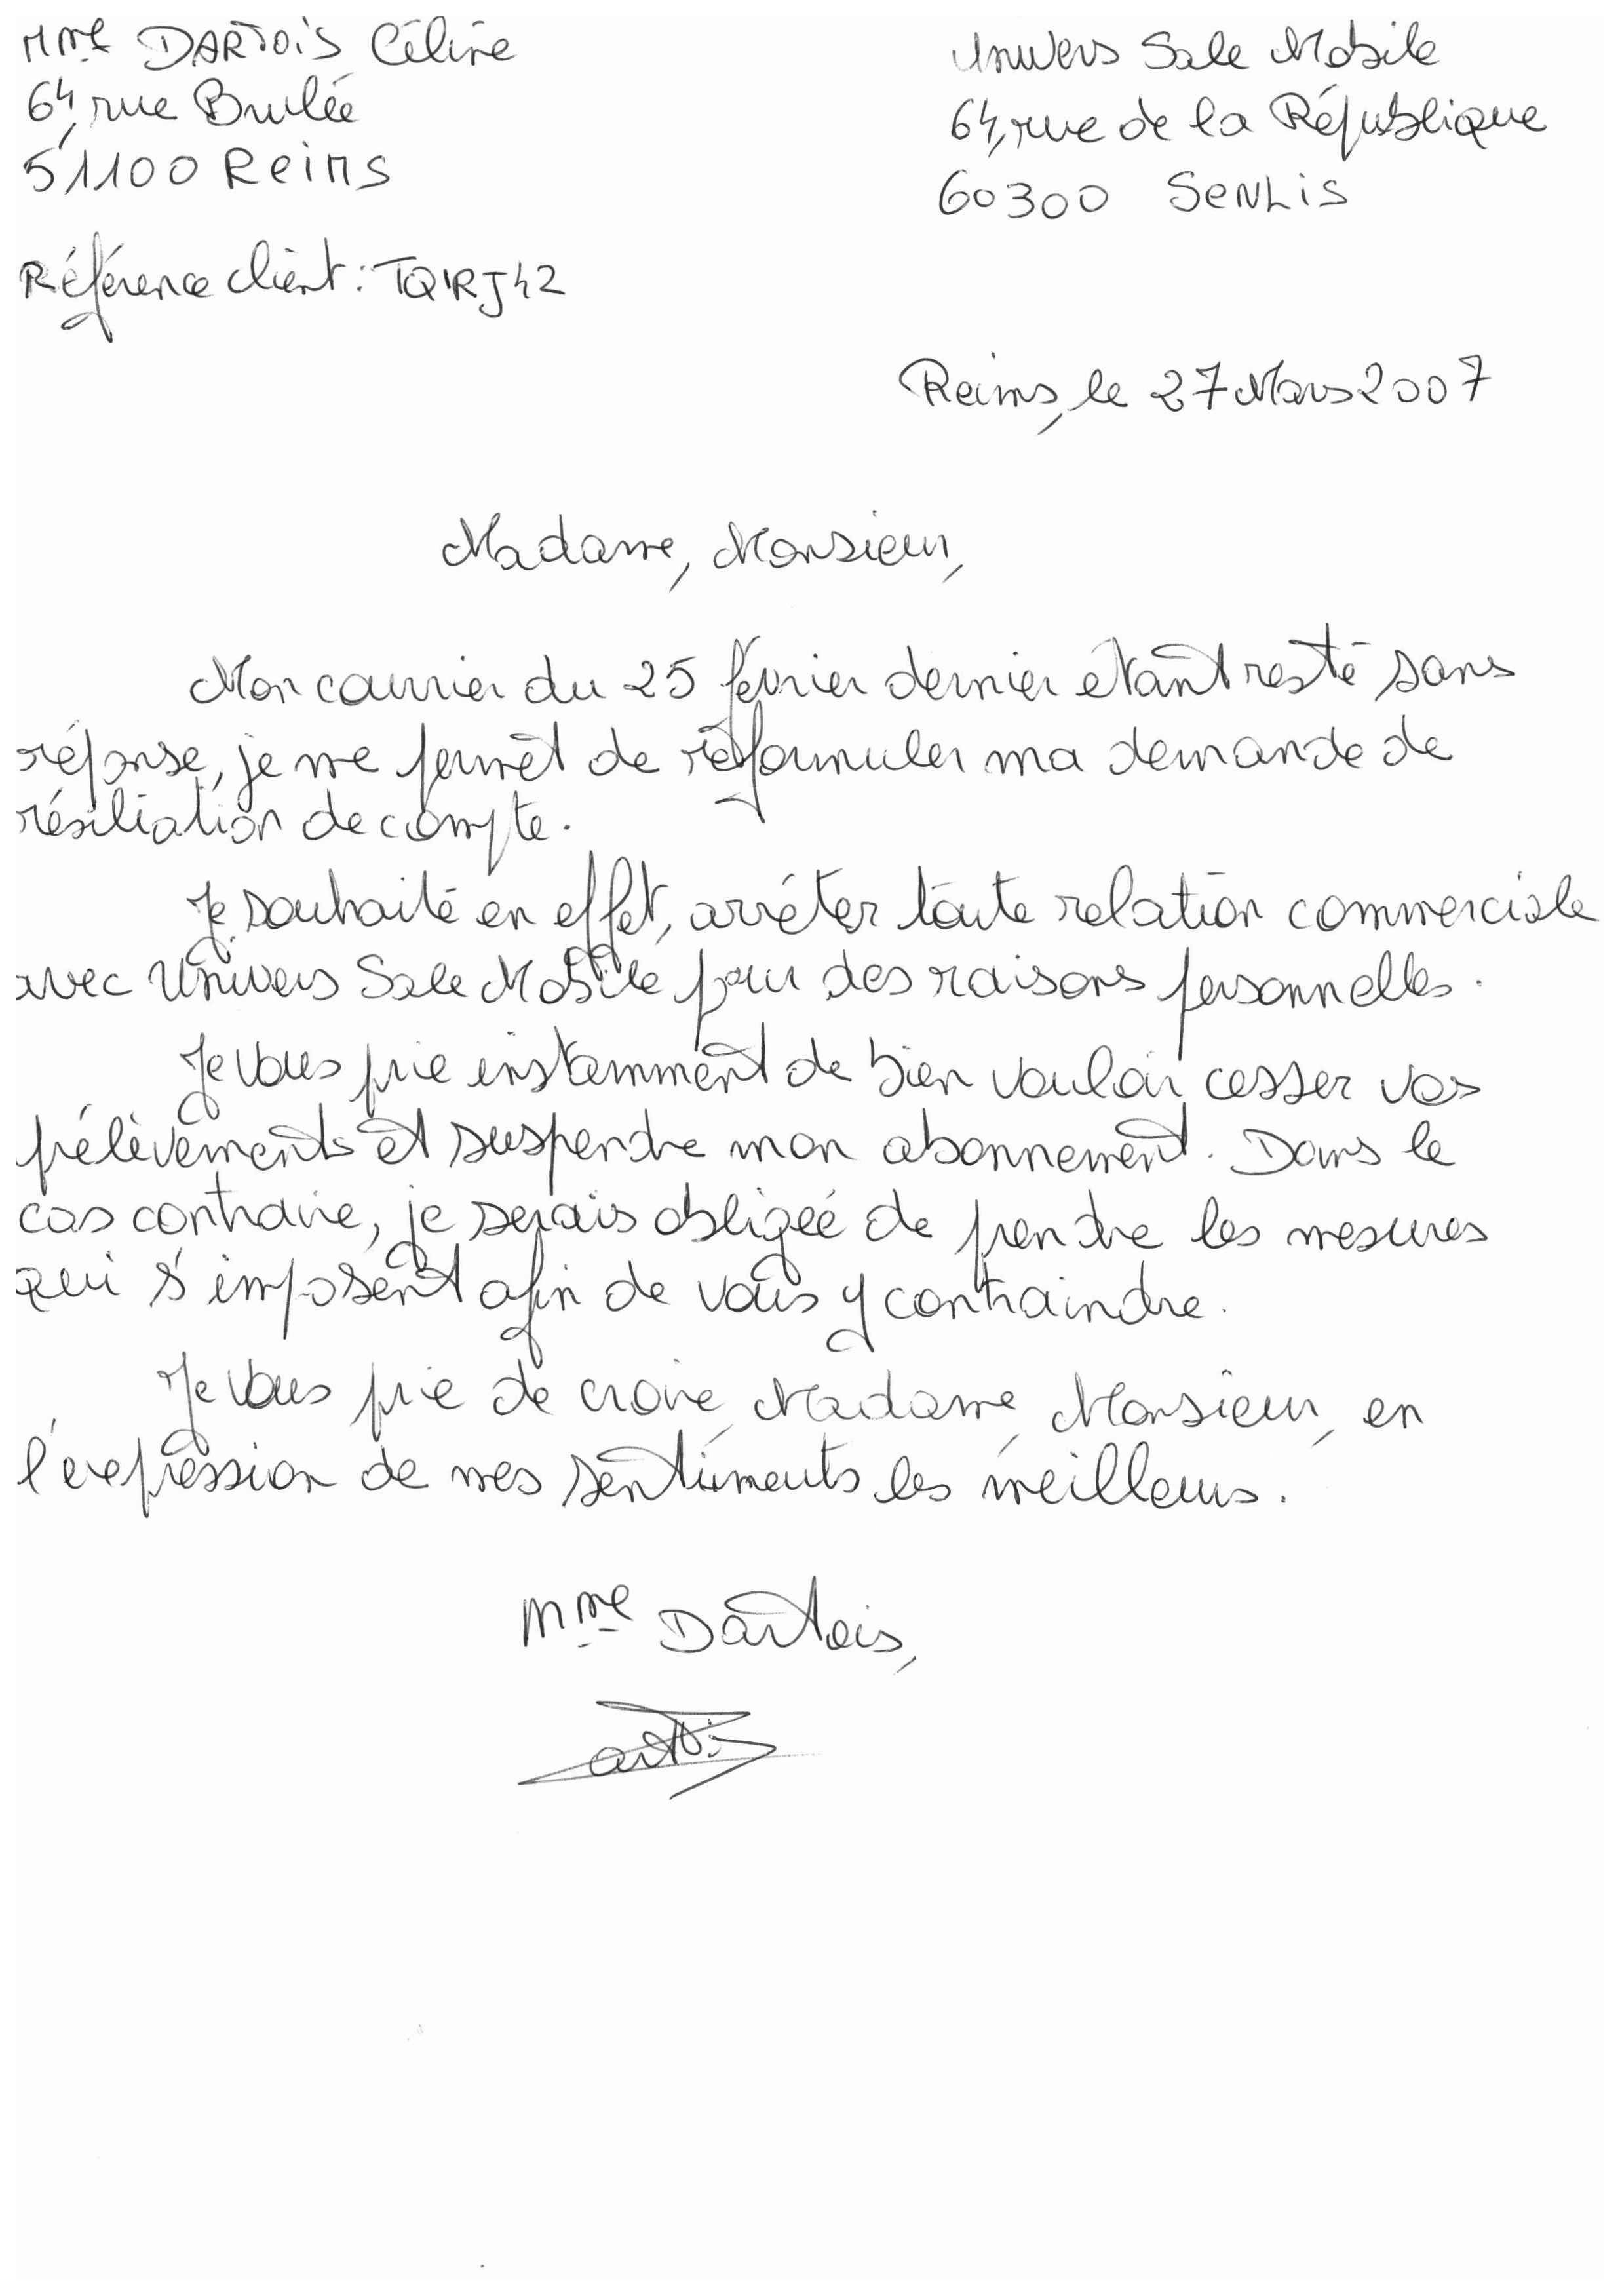 Mme DARTOIS Céline
64, rue Brulée
51100 Reims
Référence client : TQIRJ42
Univers Sale Mobile
64, rue de la République
60300 SENLIS
Reims, le 27 Mars 2007
Madame, Monsieur,
Mon courrier du 25 février dernier étant resté sans
réponse, je me permet de reformuler ma demande de
résiliation de compte.
Je souhaite en effet, arrêter toute relation commerciale
avec Univers Sale Mobile pour des raisons personnelles.
Je vous prie instamment de bien vouloir cesser vos
prélèvements et suspendre mon abonnement. Dans le
cas contraire, je serais obligée de prendre les mesures
qui s'imposent afin de vous y contraindre.
Je vous prie de croire, Madame, Monsieur, en
l'expression de mes sentiments les meilleurs.
Mme Dartois,